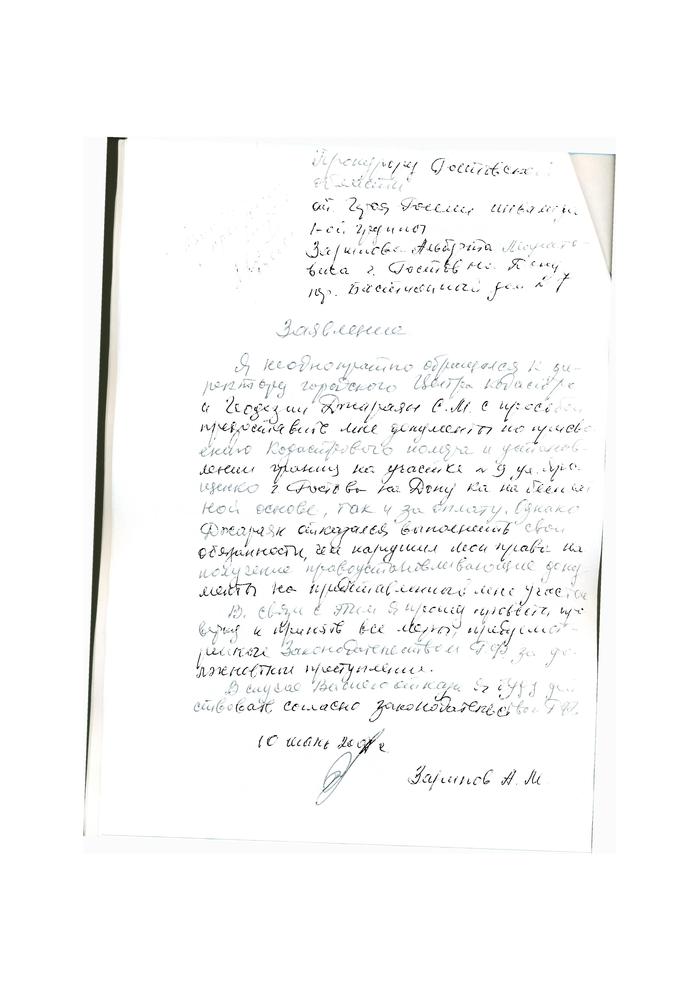 Прокурору Ростовской
области
от Героя России инвалида
1-ой группы
Зарипова Альберта Марато-
вича г. Ростов на Дону
дом № 7
Заявление
Я неоднократно обращался к ди-
ректору городского Центра кадастра
и Геодезии Джараян С.М. с просьбой
предоставить мне документы по присво
ению Кадастрового номера и установ-
лении границ на участке № 9 ул.
г. Ростова на Дону как на бесплат
ной основе, так и за оплату. Однако
Джараян отказался выполнить свои
обязанности, чем нарушил мои права на
получение правоустановливающие доку-
менты на предоставленный мне участок
В связи с этим я прошу провести про
верку и принять все меры, предусмот-
ренные Законодательством РФ за до-
лжностные преступления.
В случае Вашего отказа я буду дей
ствовать согласно законодательства РФ.
10 июнь
Зарипов А. М.